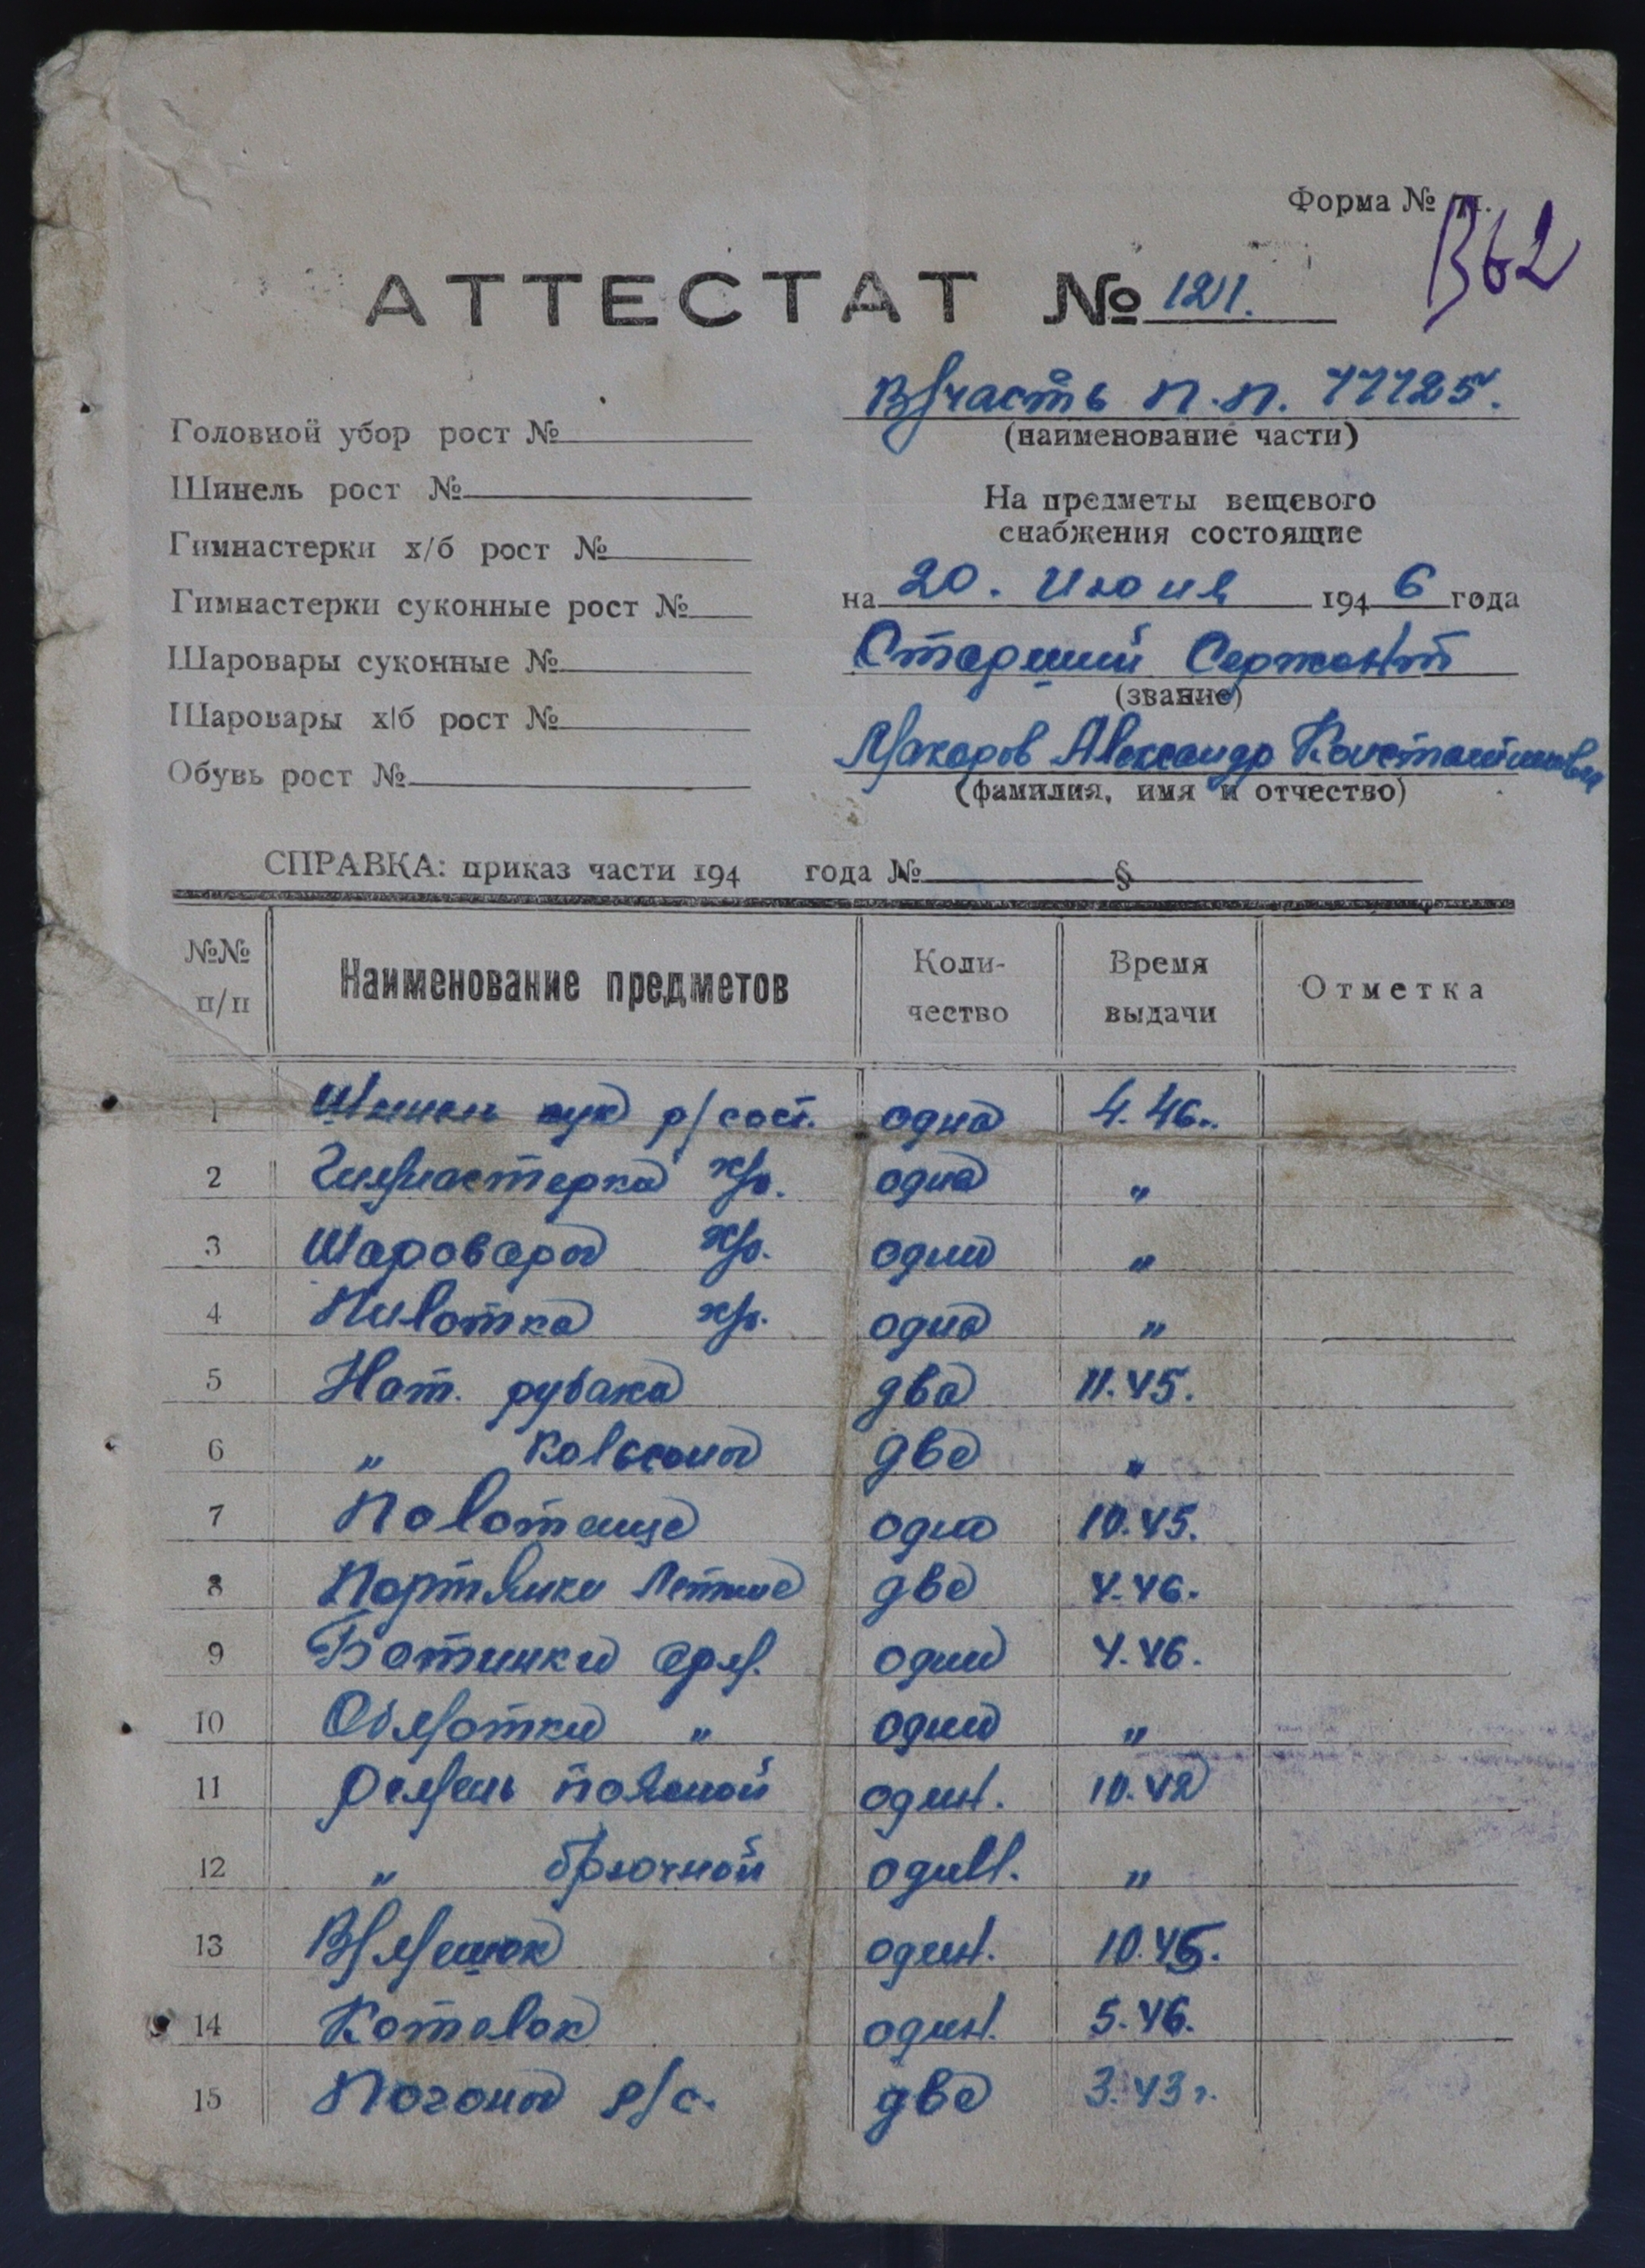 Форма №
В62
АТТЕСТАТ № 121.
В/часть п.п. 77725.
(наименование части)
Головной убор рост №
Шинель рост №
Гимнастерки х/б рост №
Гимнастерки суконные рост №
Шаровары суконные №
Шаровары х/б рост №
Обувь рост №
На предметы вещевого
снабжения состоящие
на 20. Июня 1946 года
Старший Сержант
(звание)
Макаров Александр Константинович
(фамилия, имя и отчество)
СПРАВКА: приказ части 194 года № §
№№ п/п Наименование предметов Коли-чество Время выдачи Отметка
1 Шинель р/сост. одна 4.46.
2 Гимнастерка х/б. одна "
3 Шаровары х/б. одни "
4 Пилотка х/б. одна "
5 Нат. рубаха два 11.45.
6 " Кальсоны две "
7 Полотенце одна 10.45.
8 Портянки Летние две 4.46.
9 Ботинки арм. одни 4.46.
10 Обмотки " одни "
11 Ремень поясной один. 10.42
12 " брючной один. "
13 В/мешок один. 10.45.
14 Котелок один. 5.46.
15 Погоны р/с. две 3.43 г.